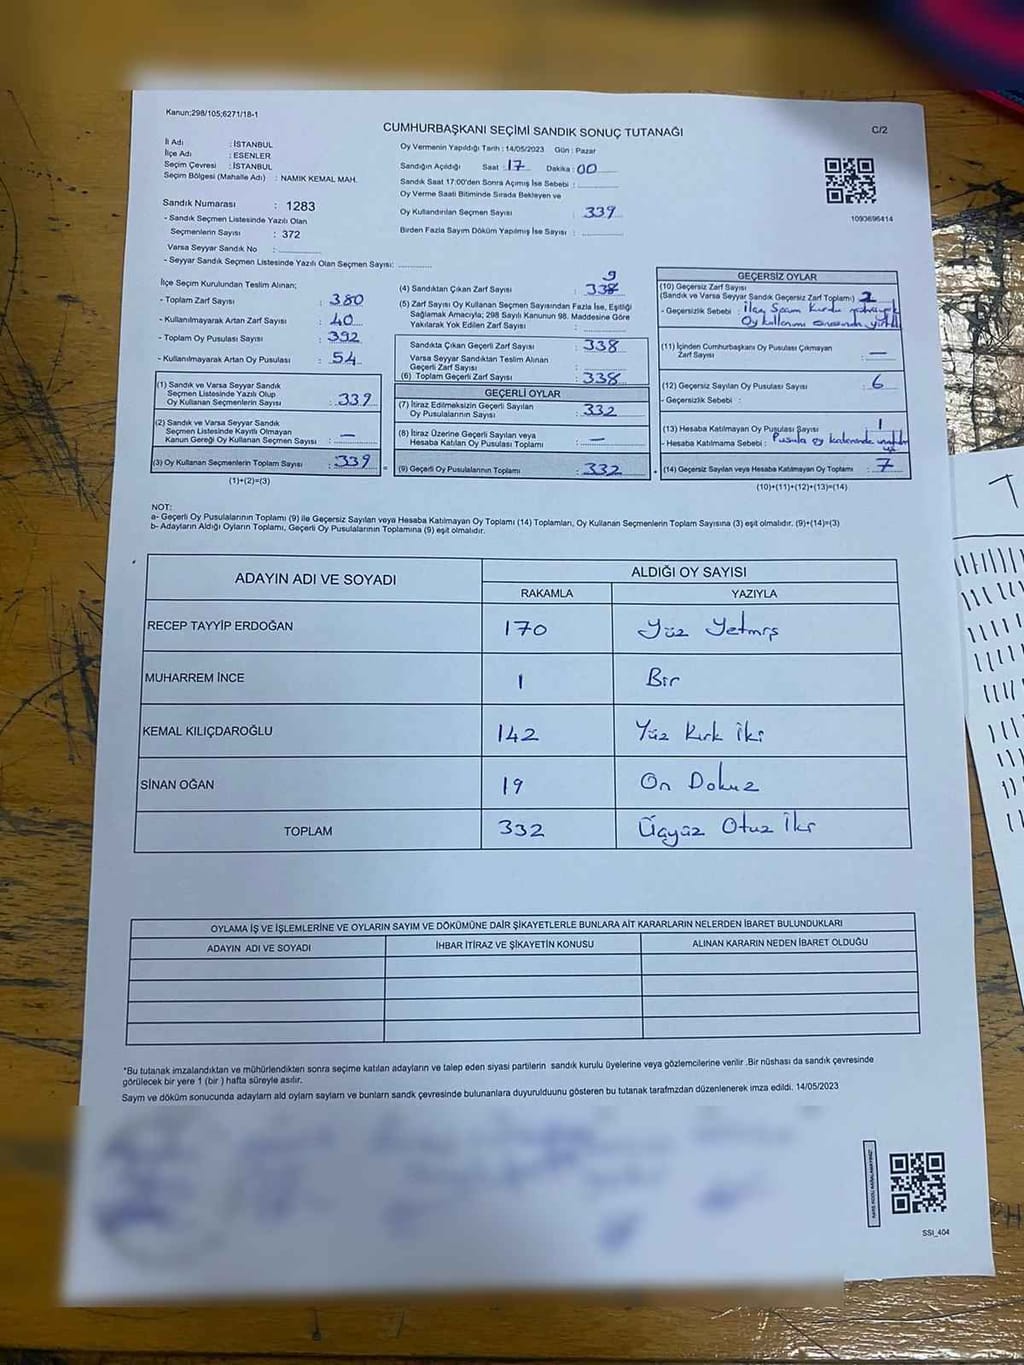 Kanun;298/105;6271/18-1
CUMHURBAŞKANI SEÇİMİ SANDIK SONUÇ TUTANAĞI
C/2
İl Adı : İSTANBUL
İlçe Adı : ESENLER
Seçim Çevresi : İSTANBUL
Seçim Bölgesi (Mahalle Adı) : NAMIK KEMAL MAH.
Sandık Numarası : 1283
- Sandık Seçmen Listesinde Yazılı Olan
Seçmenlerin Sayısı : 372
Varsa Seyyar Sandık No :
- Seyyar Sandık Seçmen Listesinde Yazılı Olan Seçmen Sayısı:
Oy Vermenin Yapıldığı Tarih : 14/05/2023 Gün : Pazar
Sandığın Açıldığı Saat : 17 Dakika : 00
Sandık Saat 17:00'den Sonra Açımış İse Sebebi :
Oy Verme Saati Bitiminde Sırada Bekleyen ve
Oy Kullandırılan Seçmen Sayısı : 339
Birden Fazla Sayım Döküm Yapılmış İse Sayısı :
1093696414
İlçe Seçim Kurulundan Teslim Alınan;
- Toplam Zarf Sayısı : 380
- Kullanılmayarak Artan Zarf Sayısı : 40
- Toplam Oy Pusulası Sayısı : 392
- Kullanılmayarak Artan Oy Pusulası : 54
(1) Sandık ve Varsa Seyyar Sandık
Seçmen Listesinde Yazılı Olup
Oy Kullanan Seçmenlerin Sayısı : 339
(2) Sandık ve Varsa Seyyar Sandık
Seçmen Listesinde Kayıtlı Olmayan
Kanun Gereği Oy Kullanan Seçmen Sayısı : —
(3) Oy Kullanan Seçmenlerin Toplam Sayısı : 339
(1)+(2)=(3)
9
(4) Sandıktan Çıkan Zarf Sayısı : 338
(5) Zarf Sayısı Oy Kullanan Seçmen Sayısından Fazla İse, Eşitliği
Sağlamak Amacıyla; 298 Sayılı Kanunun 98. Maddesine Göre
Yakılarak Yok Edilen Zarf Sayısı :
Sandıkta Çıkan Geçerli Zarf Sayısı : 338
Varsa Seyyar Sandıktan Teslim Alınan
Geçerli Zarf Sayısı :
(6) Toplam Geçerli Zarf Sayısı : 338
GEÇERLİ OYLAR
(7) İtiraz Edilmeksizin Geçerli Sayılan
Oy Pusulalarının Sayısı : 332
(8) İtiraz Üzerine Geçerli Sayılan veya
Hesaba Katılan Oy Pusulası Toplamı : —
= (9) Geçerli Oy Pusulalarının Toplamı : 332
GEÇERSİZ OYLAR
(10) Geçersiz Zarf Sayısı
(Sandık ve Varsa Seyyar Sandık Geçersiz Zarf Toplamı) 2
- Geçersizlik Sebebi : İlçe Seçim Kurulu
Oy kullanımı sırasında yırtıldı
(11) İçinden Cumhurbaşkanı Oy Pusulası Çıkmayan
Zarf Sayısı : —
(12) Geçersiz Sayılan Oy Pusulası Sayısı : 6
- Geçersizlik Sebebi :
(13) Hesaba Katılmayan Oy Pusulası Sayısı : 1
- Hesaba Katılmama Sebebi : Pusula oy kabininde
(14) Geçersiz Sayılan veya Hesaba Katılmayan Oy Toplamı : 7
(10)+(11)+(12)+(13)=(14)
NOT:
a- Geçerli Oy Pusulalarının Toplamı (9) ile Geçersiz Sayılan veya Hesaba Katılmayan Oy Toplamı (14) Toplamları, Oy Kullanan Seçmenlerin Toplam Sayısına (3) eşit olmalıdır. (9)+(14)=(3)
b- Adayların Aldığı Oyların Toplamı, Geçerli Oy Pusulalarının Toplamına (9) eşit olmalıdır.
ADAYIN ADI VE SOYADI ALDIĞI OY SAYISI
RAKAMLA YAZIYLA
RECEP TAYYİP ERDOĞAN 170 Yüz Yetmiş
MUHARREM İNCE 1 Bir
KEMAL KILIÇDAROĞLU 142 Yüz Kırk İki
SİNAN OĞAN 19 On Dokuz
TOPLAM 332 Üçyüz Otuz İki
OYLAMA İŞ VE İŞLEMLERİNE VE OYLARIN SAYIM VE DÖKÜMÜNE DAİR ŞİKAYETLERLE BUNLARA AİT KARARLARIN NELERDEN İBARET BULUNDUKLARI
ADAYIN ADI VE SOYADI İHBAR İTİRAZ VE ŞİKAYETİN KONUSU ALINAN KARARIN NEDEN İBARET OLDUĞU
*Bu tutanak imzalandıktan ve mühürlendikten sonra seçime katılan adayların ve talep eden siyasi partilerin sandık kurulu üyelerine veya gözlemcilerine verilir .Bir nüshası da sandık çevresinde
görülecek bir yere 1 (bir ) hafta süreyle asılır.
Sayım ve döküm sonucunda adaylarn ald oylarn saylarn ve bunlarn sandk çevresinde bulunanlara duyurulduunu gösteren bu tutanak tarafmzdan düzenlenerek imza edildi. 14/05/2023
SSI_404